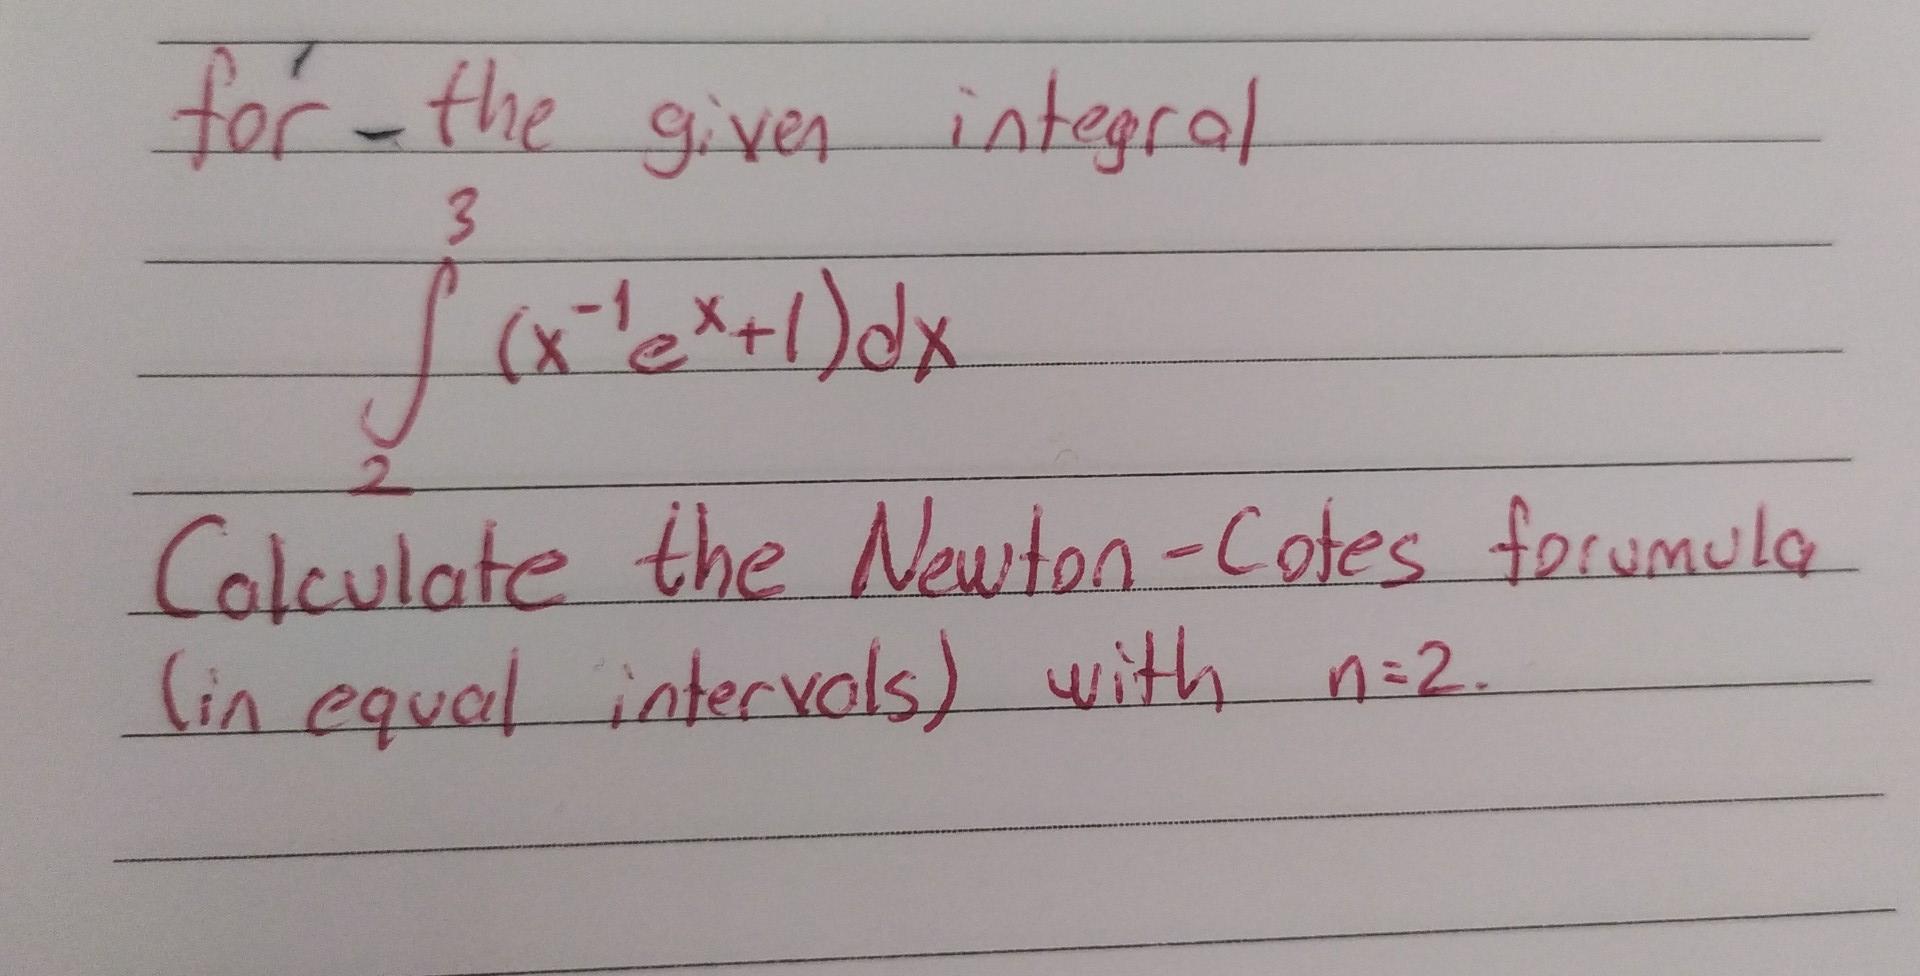 for - the given integral
3
∫ (x⁻¹eˣ+1)dx
2
Calculate the Newton-Cotes forumula
(in equal intervals) with n=2.